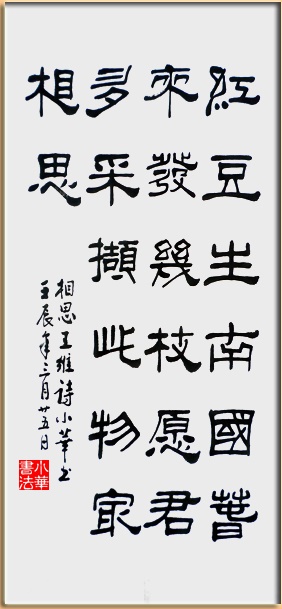 紅豆生南國春
來發幾枝愿君
多采擷此物最
相思
相思王維詩小華书
壬辰年三月廿五日
小華
書法